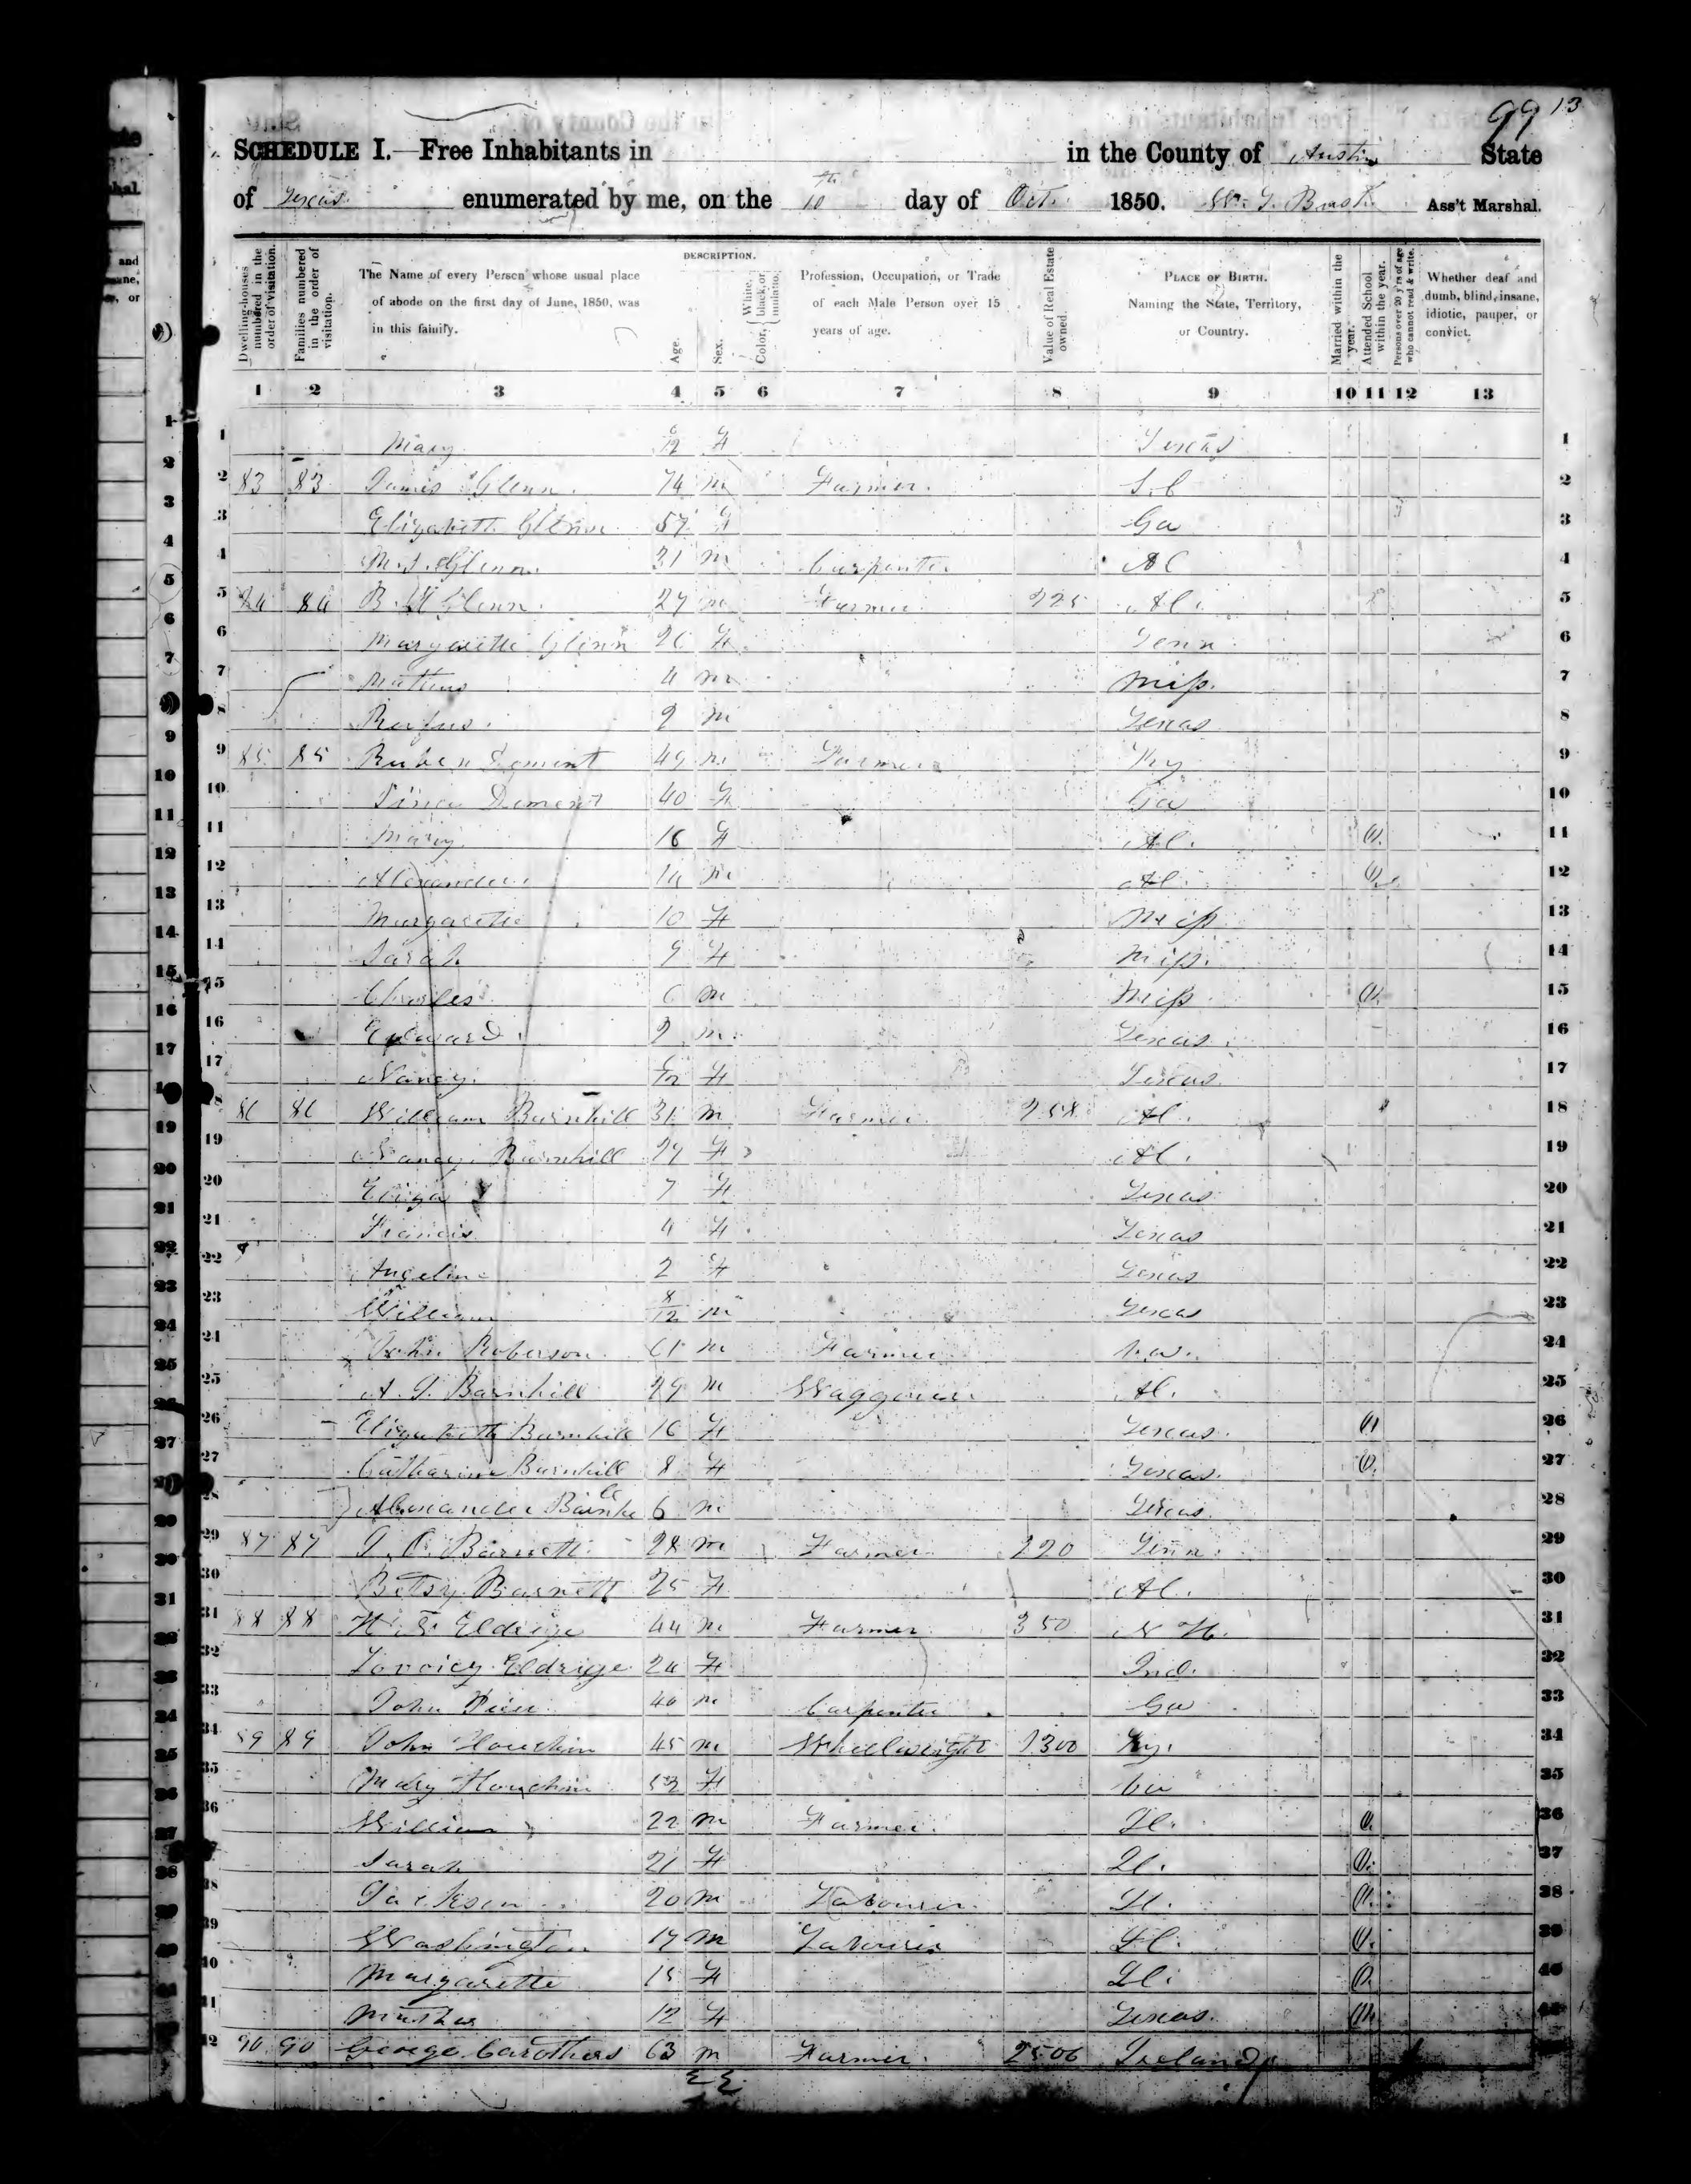 99 13
SCHEDULE I.—Free Inhabitants in in the County of Austin State
of Texas enumerated by me, on the 10th day of Oct. 1850. Ass't Marshal.
Dwelling-houses numbered in the order of visitation.
Families numbered in the order of visitation.
The Name of every Person whose usual place of abode on the first day of June, 1850, was in this family.
DESCRIPTION.
Age.
Sex.
Color, { White, black, or mulatto.
Profession, Occupation, or Trade of each Male Person over 15 years of age.
Value of Real Estate owned.
PLACE OF BIRTH. Naming the State, Territory, or Country.
Married within the year.
Attended School within the year.
Persons over 20 y'rs of age who cannot read & write.
Whether deaf and dumb, blind, insane, idiotic, pauper, or convict.
1 2 3 4 5 6 7 8 9 10 11 12 13
1 Mary F Texas 1
2 83 83 James Glenn 74 m Farmer. S.C 2
3 Elizabeth Glenn 57 F Ga 3
4 Glenn 31 m Carpenter Al 4
5 84 84 Glenn 27 m Farmer 225 Al. 5
6 Margarette Glenn 26 F Tenn 6
7 4 m Miss. 7
8 Rufus 2 m Texas 8
9 85 85 Ruben Dement 49 m Farmer Ky 9
10 Dement 40 F Ga 10
11 Mary 16 F Al. 11
12 Alexander 14 m Al. 12
13 Margarette 10 F Miss 13
14 Sarah 9 F Miss. 14
15 Charles 6 m Miss 15
16 Edward 2 m Texas 16
17 Nancy F Texas 17
18 86 86 William Barnhill 31 m Farmer 258 Al. 18
19 Nancy Barnhill 27 F Al. 19
20 Eliza 7 F Texas 20
21 Francis 4 F Texas 21
22 Angeline 2 F Texas 22
23 William 8/12 m Texas 23
24 John Roberson 61 m Farmer 24
25 Barnhill 29 m Waggoner Al. 25
26 Elizabeth Barnhill 16 F Texas. 26
27 Catharine Barnhill 8 F Texas. 27
28 Alexander Barnhill 6 m Texas. 28
29 87 87 Barnett 28 m Farmer 220 Tenn. 29
30 Betsy Barnett 25 F Al. 30
31 88 88 Eldrige 44 m Farmer 350 N H. 31
32 Eldrige 24 F Ind. 32
33 John 40 m Carpenter Ga 33
34 89 89 John Houchin 45 m Wheelwright 1300 Ky. 34
35 Mary Houchin F 35
36 William 22 m Farmer. Il. 36
37 Sarah 21 F Il. 37
38 Jackson 20 m Labourer Il. 38
39 Washington 17 m Labourer Il. 39
40 Margarette 15 F Il. 40
41 Martha 12 F Texas. 41
42 90 90 George Carothers 63 m Farmer. 2506 Ireland